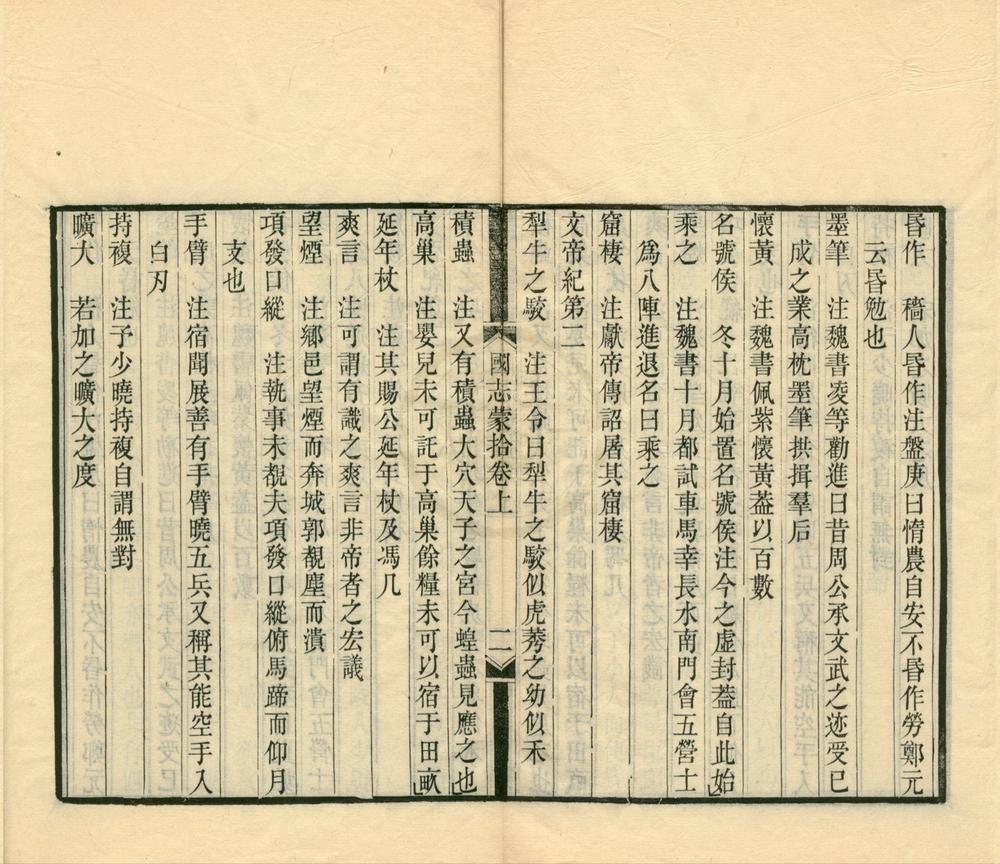 昬作　穡人昬作注盤庚曰惰農自安不昬作勞鄭元
云昬勉也
墨筆　注魏書凌等勸進曰昔周公承文武之迹受已
成之業高枕墨筆拱揖羣后
懷黃　注魏書佩紫懷黃葢以百數
名號侯　冬十月始置名號侯注今之虛封葢自此始
乘之　注魏書十月都試車馬幸長水南門會五營士
爲八陣進退名曰乘之
窟棲　注獻帝傳詔屠其窟棲
文帝紀第二
犁牛之駮　注王令曰犁牛之駮似虎莠之幼似禾
國志蒙拾卷上　二
積蟲　注又有積蟲大穴天子之宮今蝗蟲見應之也
高巢　注嬰兒未可託于高巢餘糧未可以宿于田畝
延年杖　注其賜公延年杖及馮几
爽言　注可謂有識之爽言非帝者之宏議
望煙　注鄉邑望煙而奔城郭覩塵而潰
項發口縱　注執事未覩夫項發口縱俯馬蹄而仰月
支也
手臂　注宿聞展善有手臂曉五兵又稱其能空手入
白刃
持複　注予少曉持複自謂無對
曠大　若加之曠大之度